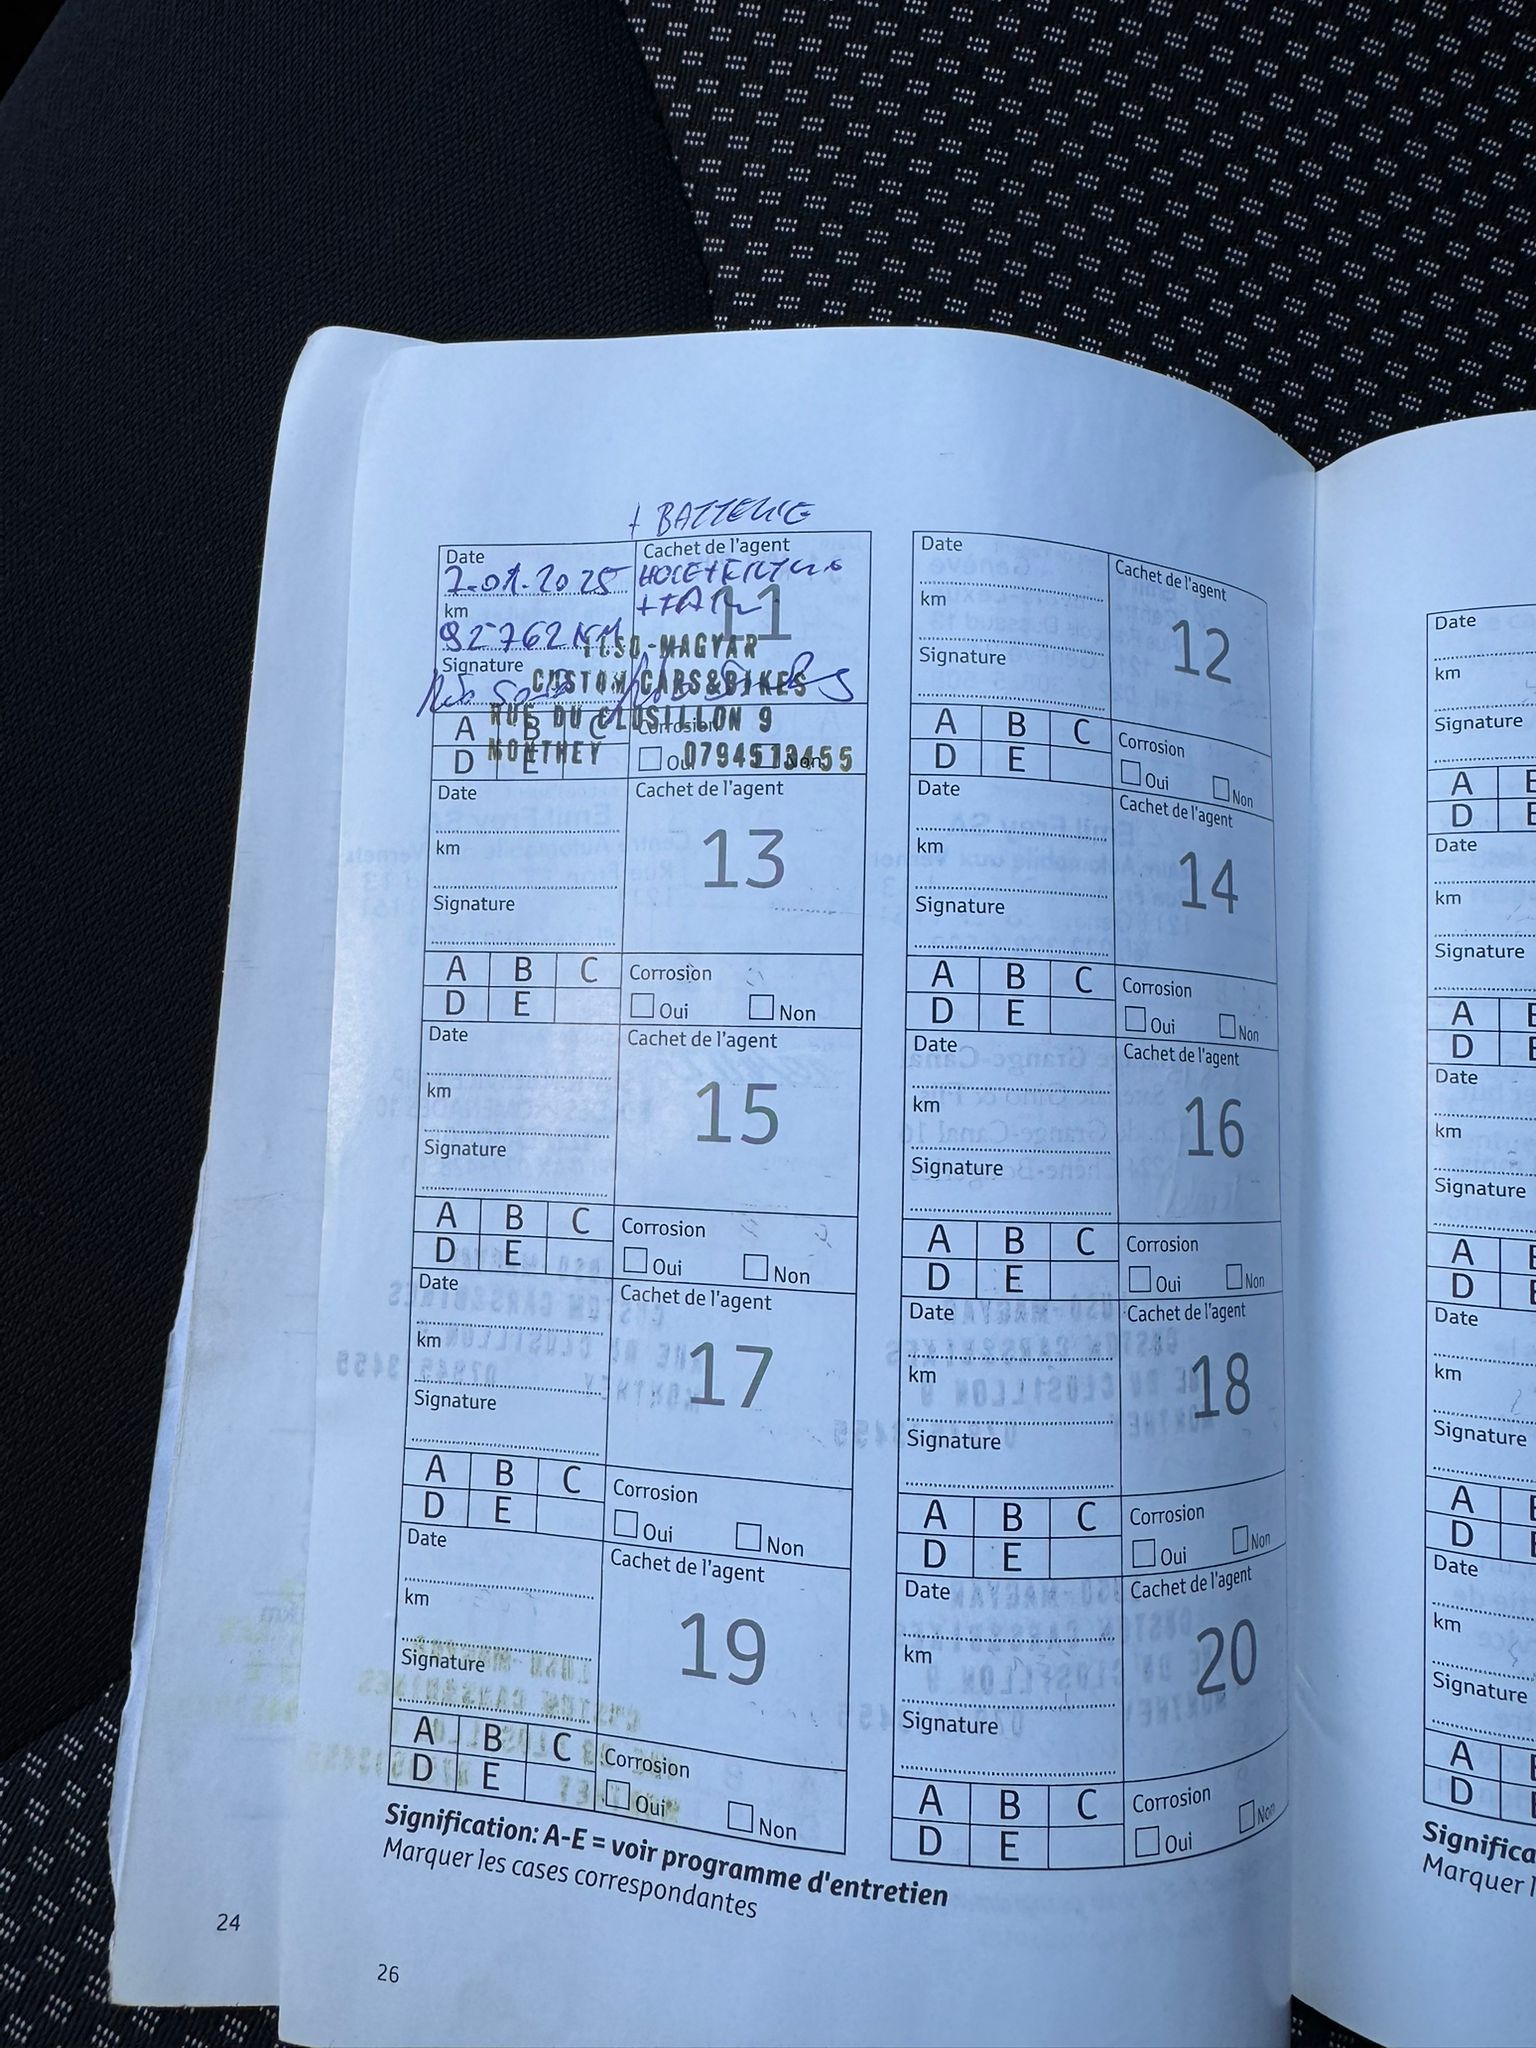 + BATTERIE
Date
7.01.2025
km
92762 KM
Signature
Cachet de l'agent
11
-MAGYAR
CUSTOM CARS&BIKES
RUE DU CLUSILLON 9
MONTHEY 0794513455
A B C
D E
Corrosion
Oui Non
Date
km
Signature
Cachet de l'agent
12
A B C
D E
Corrosion
Oui Non
Date
km
Signature
Cachet de l'agent
13
A B C
D E
Corrosion
Oui Non
Date
km
Signature
Cachet de l'agent
14
A B C
D E
Corrosion
Oui Non
Date
km
Signature
Cachet de l'agent
15
A B C
D E
Corrosion
Oui Non
Date
km
Signature
Cachet de l'agent
16
A B C
D E
Corrosion
Oui Non
Date
km
Signature
Cachet de l'agent
17
A B C
D E
Corrosion
Oui Non
Date
km
Signature
Cachet de l'agent
18
A B C
D E
Corrosion
Oui Non
Date
km
Signature
Cachet de l'agent
19
A B C
D E
Corrosion
Oui Non
Date
km
Signature
Cachet de l'agent
20
A B C
D E
Corrosion
Oui Non
Signification: A-E = voir programme d'entretien
Marquer les cases correspondantes
24
26
Date
km
Signature
A
D
Date
km
Signature
A
D
Date
km
Signature
A
D
Date
km
Signature
A
D
Date
km
Signature
A
D
Marquer